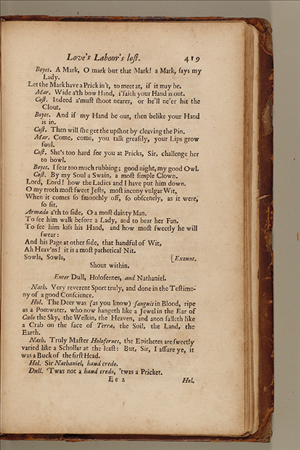 Love's Labour's lost. 419
Boyet. A Mark, O mark but that Mark! a Mark, says my
Lady.
Let the Mark have a Prick in't, to meet at, if it may be.
Mar. Wide a'th bow Hand, i'faith your Hand is out.
Cost. Indeed a'must shoot nearer, or he'll ne'er hit the
Clout.
Boyet. And if my Hand be out, then belike your Hand
is in.
Cost. Then will she get the upshot by cleaving the Pin.
Mar. Come, come, you talk greasily, your Lips grow
foul.
Cost. She's too hard for you at Pricks, Sir, challenge her
to bowl.
Boyet. I fear too much rubbing; good night, my good Owl.
Cost. By my Soul a Swain, a most simple Clown.
Lord, Lord! how the Ladies and I have put him down.
O my troth most sweet Jests, most incony vulgar Wit,
When it comes so smoothly off, so obscenely, as it were,
so fit.
Armado a'th to side. O a most dainty Man.
To see him walk before a Lady, and to bear her Fan.
To see him kiss his Hand, and how most sweetly he will
swear:
And his Page at other side, that handful of Wit,
Ah Heav'ns! it is a most pathetical Nit.
Sowla, Sowla, [Exeunt.
Shout within.
Enter Dull, Holofernes, and Nathaniel.
Nath. Very reverent Sport truly, and done in the Testimo-
ny of a good Conscience.
Hol. The Deer was (as you know) sanguis in Blood, ripe
as a Pomwater, who now hangeth like a Jewel in the Ear of
Cœlo the Sky, the Welkin, the Heaven, and anon falleth like
a Crab on the face of Terra, the Soil, the Land, the
Earth.
Nath. Truly Master Holofernes, the Epithetes are sweetly
varied like a Schollar at the least: But, Sir, I assure ye, it
was a Buck of the first Head.
Hol. Sir Nathaniel, haud credo.
Dull. 'Twas not a haud credo, 'twas a Pricket.
E e 2 Hol.